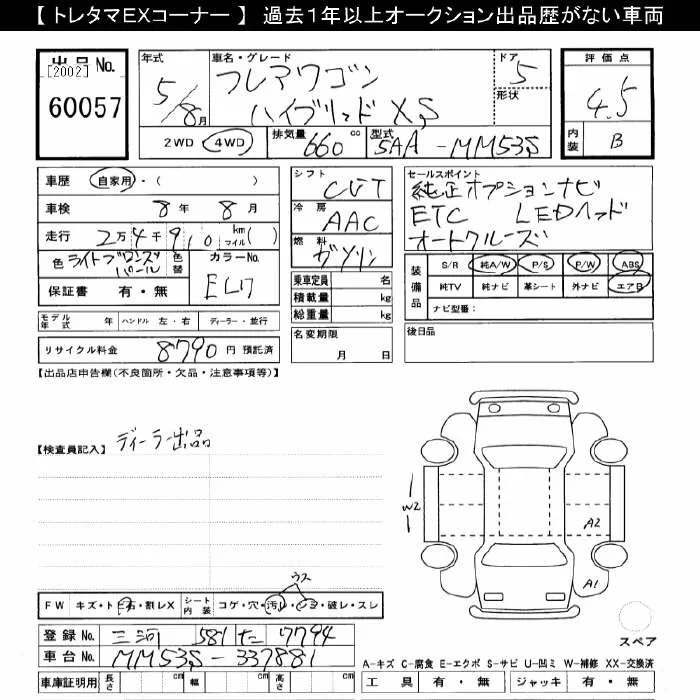 【 トレタマEXコーナー 】 過去1年以上オークション出品歴がない車両
出品 No.
[2002]
60057
年式
5/8月
車名・グレード
フレアワゴン
ハイブリッド XS
ドア
5
形状
評価点
4.5
内装
B
2WD 4WD
排気量 660 cc
型式 5AA-MM53S
車歴 自家用・( )
車検 8年 8月
走行 2万4千910 km マイル( )
色 ライトブロンズパール 色替
カラーNo.
保証書 有・無
シフト
CVT
冷房
AAC
燃料
ガソリン
乗車定員 名
積載量 kg
総重量 kg
名変期限
月 日
セールスポイント
純正オプションナビ
ETC LEDヘッド
オートクルーズ
装備品
S/R 純A/W P/S P/W ABS
純TV 純ナビ 革シート 外ナビ エアB
ナビ型番:
後日品
モデル年式 年 ハンドル 左・右 ディーラー・並行
リサイクル料金 8790 円 預託済
【出品店申告欄(不良箇所・欠品・注意事項等)】
【検査員記入】 ディーラー出品
W2
A2
A1
スペア
ウス
FW キズ・トビ石・割レX
シート内装 コゲ・穴・汚レ・シミ・破レ・スレ
登録 No. 三河 581 た 7794
車台 No. MM53S-337881
車庫証明用 長さ cm 幅 cm 高さ cm
A-キズ C-腐食 E-エクボ S-サビ U-凹ミ W-補修 XX-交換済
工具 有・無 ジャッキ 有・無